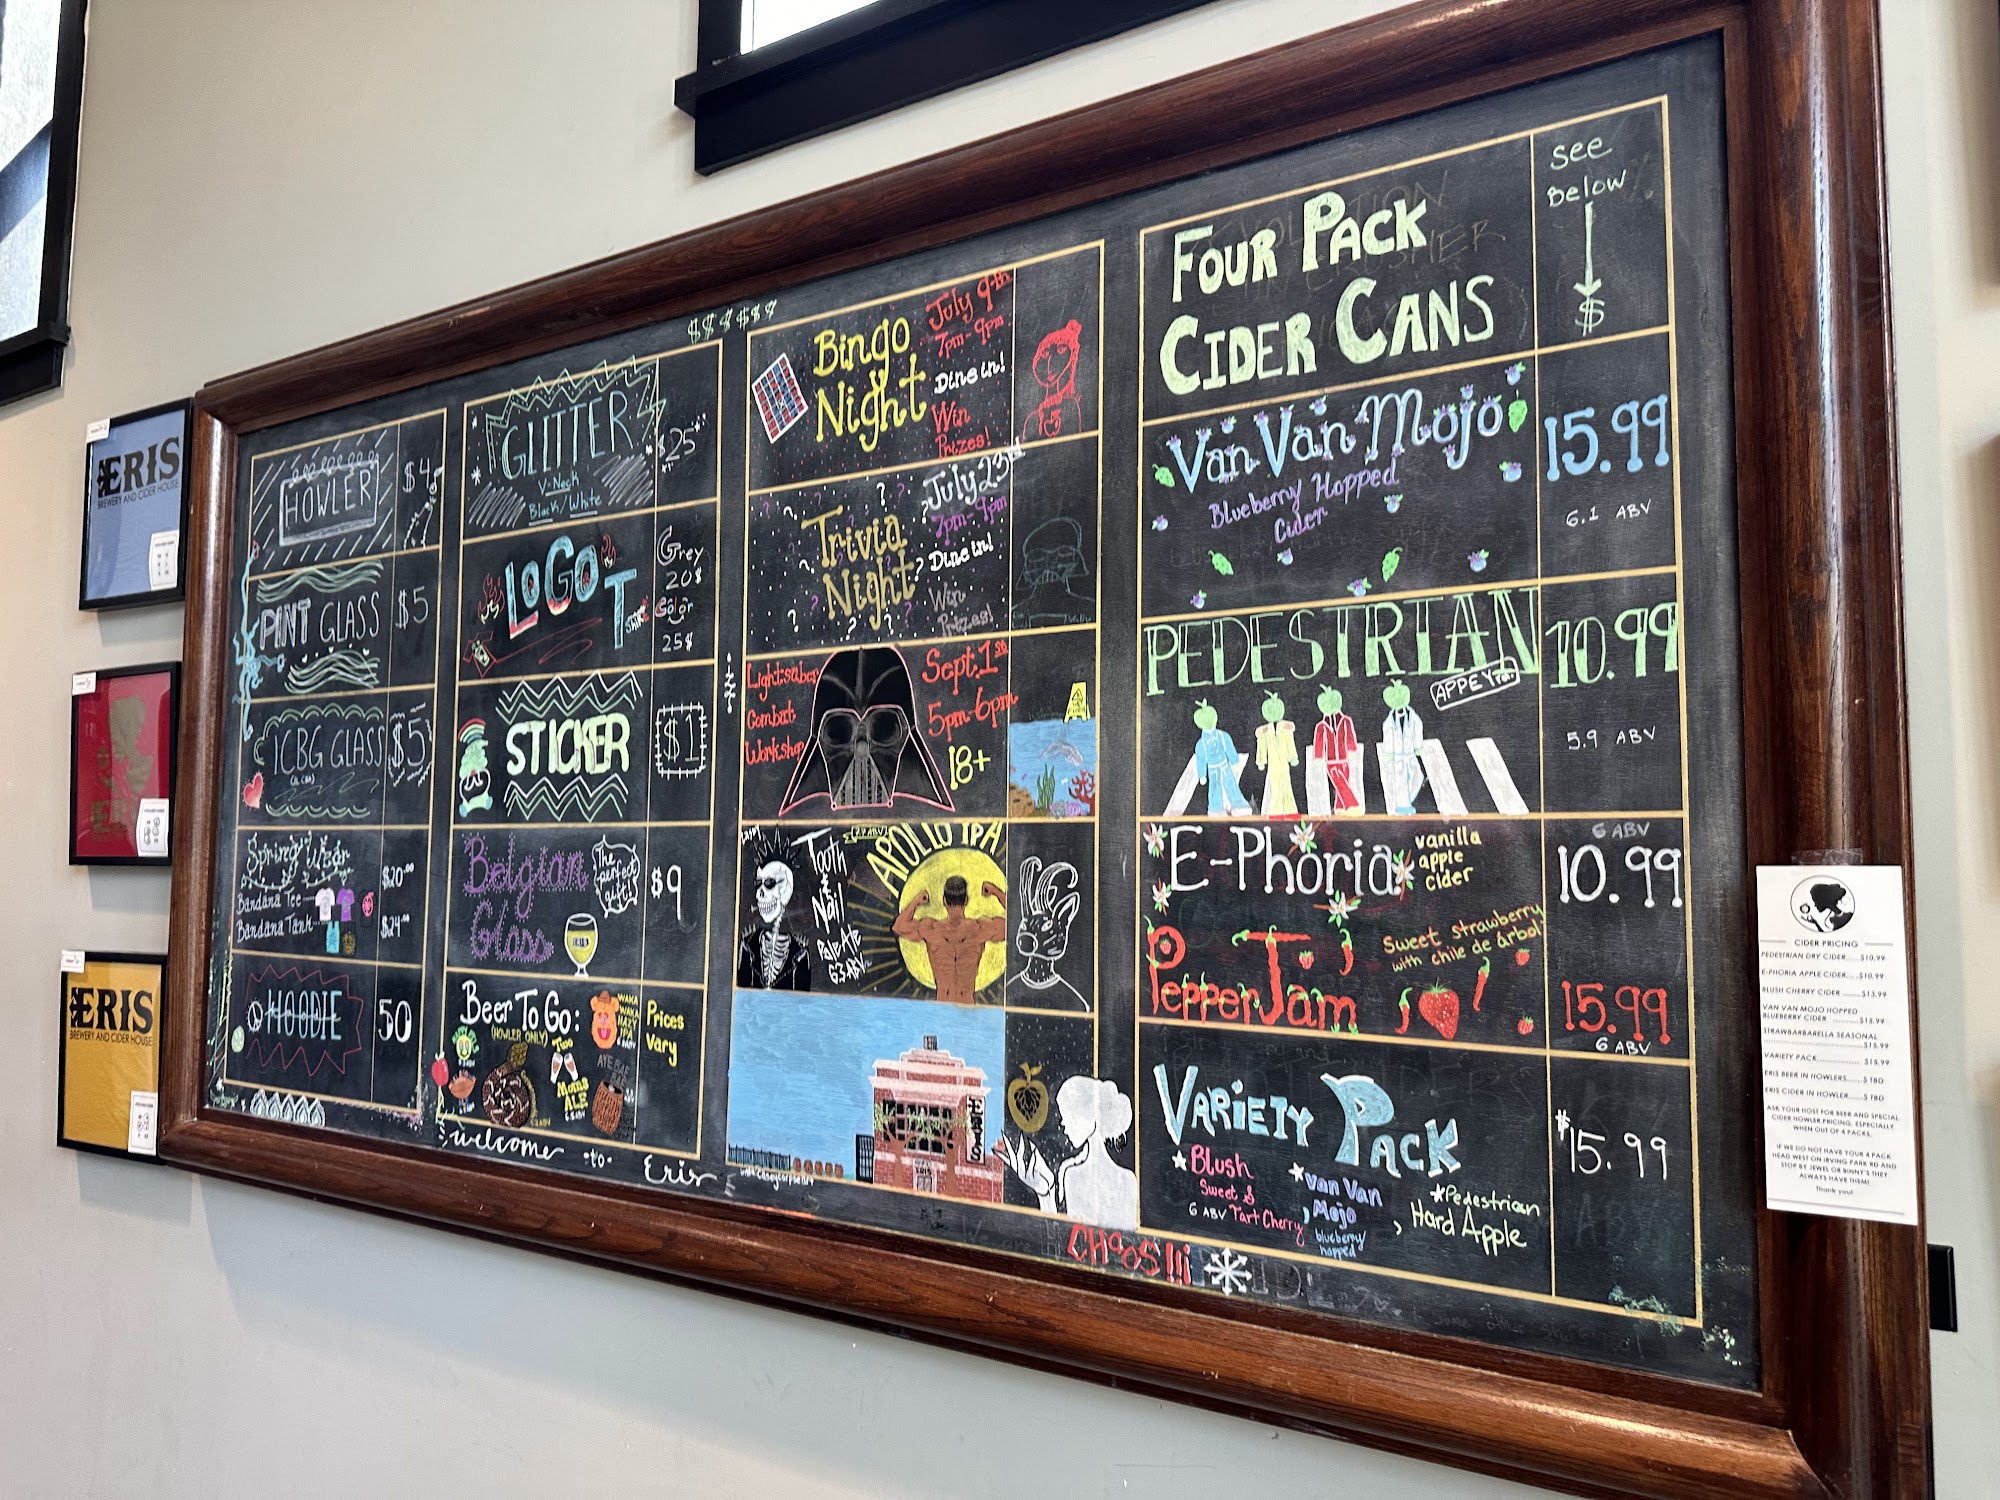 ERIS
BREWERY AND CIDER HOUSE
ERIS
BREWERY AND CIDER HOUSE
$$$$$$
HOWLER
$4
PINT GLASS
$5
ICBG GLASS
$5
Spring Wear
Bandana Tee
$20.00
Bandana Tank
$24.00
HOODIE
50
GLITTER
V-Neck
Black/White
$25
LOGO T
SHIRT
Grey
20$
Color
25$
STICKER
$1
Belgian
Glass
The
perfect
gift!
ERIS
$9
Beer To Go:
(HOWLER ONLY)
WAKA
WAKA
HAZY
IPA
Two
Moms
ALE
Prices
Vary
Welcome to Eris
Bingo
Night
July 9th
7pm-9pm
Dine in!
Win
Prizes!
Trivia
Night
July 23rd
7pm-9pm
Dine in!
Win
Prizes!
Lightsaber
Combat
Workshop
Sept. 1st
5pm-6pm
18+
Tooth
& Nail
Pale Ale
6.3 ABV
APOLLO IPA
ERIS
CHaOS!!!
FOUR PACK
CIDER CANS
See
Below
$
Van Van Mojo
Blueberry Hopped
Cider
15.99
6.1 ABV
PEDESTRIAN
APPEY Rd.
10.99
5.9 ABV
E-Phoria
vanilla
apple
cider
6 ABV
10.99
PepperJam
Sweet strawberry
with chile de árbol
15.99
6 ABV
VARIETY PACK
Blush
Sweet &
6 ABV Tart Cherry,
Van Van
Mojo
blueberry
hopped,
Pedestrian
Hard Apple
$15.99
CIDER PRICING
PEDESTRIAN DRY CIDER.....$10.99
E-PHORIA APPLE CIDER....$10.99
BLUSH CHERRY CIDER .......$13.99
VAN VAN MOJO HOPPED
BLUEBERRY CIDER. ..........$15.99
STRAWBARBARELLA SEASONAL
..............................$15.99
VARIETY PACK................ $15.99
ERIS BEER IN HOWLERS......$ TBD
ERIS CIDER IN HOWLER......$ TBD
ASK YOUR HOST FOR BEER AND SPECIAL
CIDER HOWLER PRICING, ESPECIALLY
WHEN OUT OF 4 PACKS.
IF WE DO NOT HAVE YOUR 4 PACK
HEAD WEST ON IRVING PARK RD AND
STOP BY JEWEL OR BINNY'S THEY
ALWAYS HAVE THEM!
Thank you!